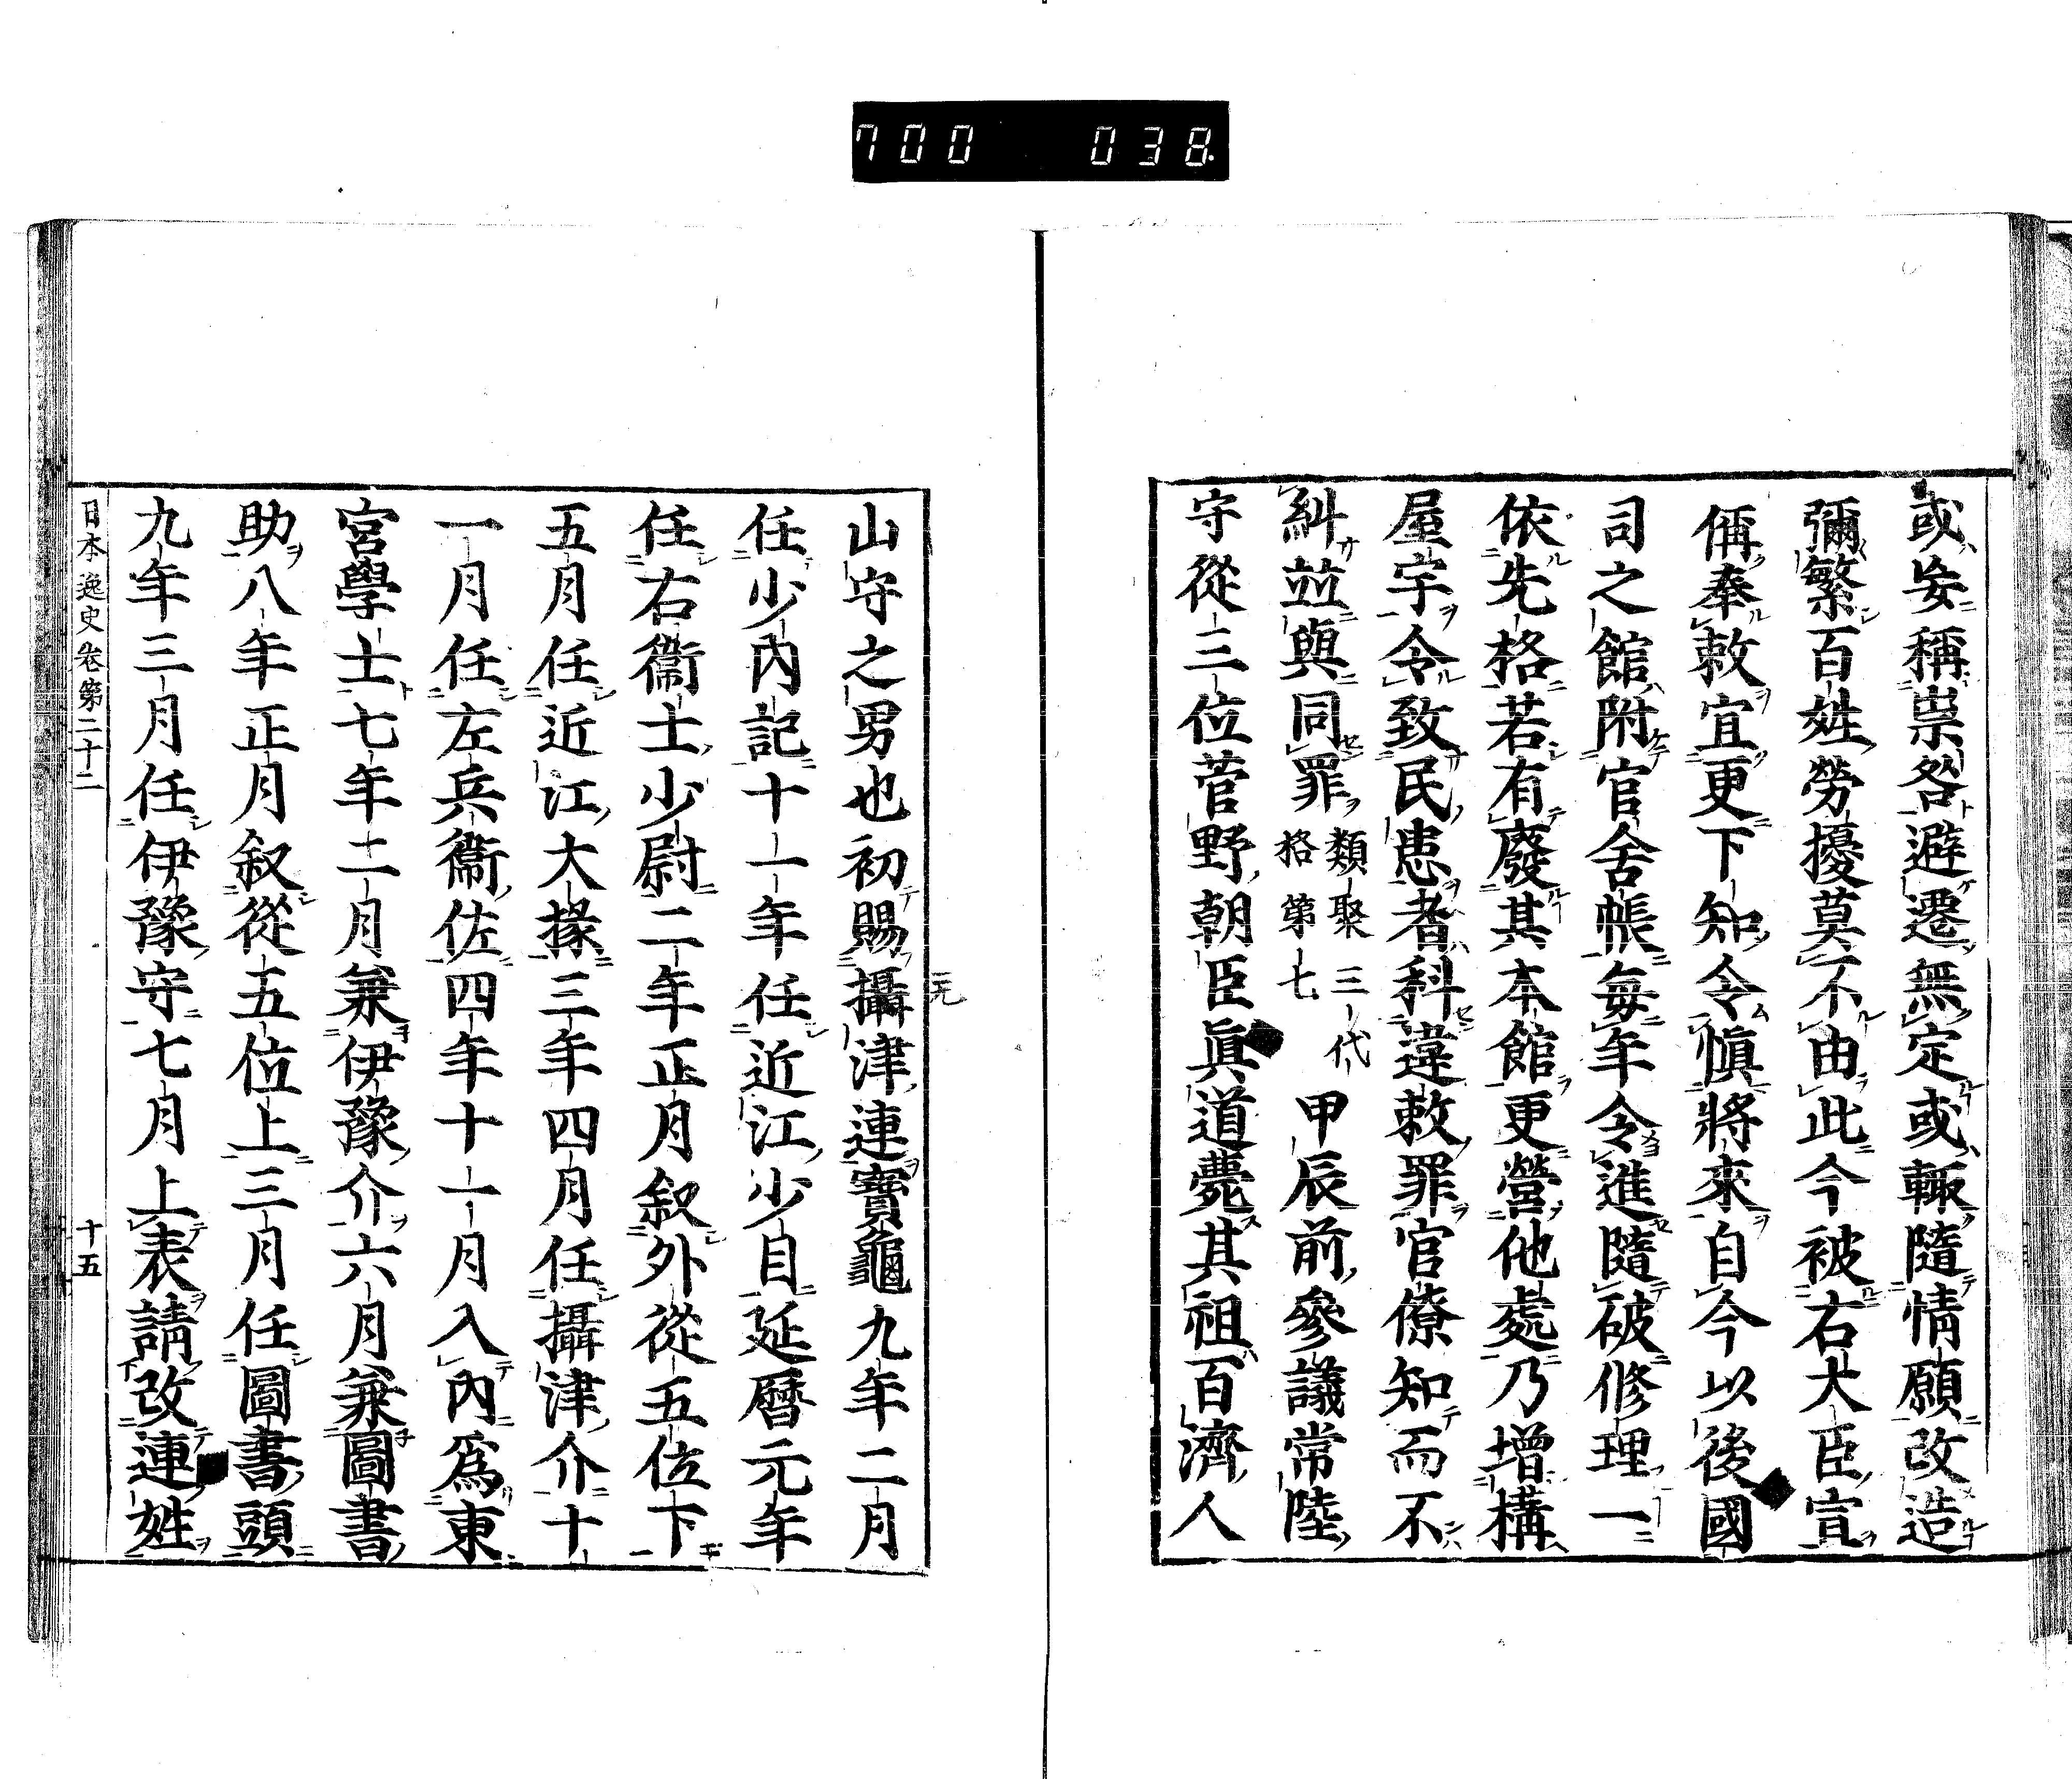 700 038
或妄稱祟咎避遷無定或輙隨情願改造
彌繁百姓勞擾莫不由此今被右大臣宣
偁奉敕宜更下知令愼將來自今以後國
司之館附官舍帳每年令進隨破修理一
依先格若有廢其本館更營他處乃增構
屋宇令致民患者科違敕罪官僚知而不
糾並與同罪 類聚三代格第七 甲辰前參議常陸
守從三位菅野朝臣眞道薨其祖百濟人
山守之男也初賜攝津連寶龜九年二月
任少內記十一年任近江少目延曆元年
任右衞士少尉二年正月叙外從五位下
五月任近江大掾三年四月任攝津介十
一月任左兵衞佐四年十一月入內爲東
宮學士七年二月兼伊豫介六月兼圖書
助八年正月叙從五位上三月任圖書頭
九年三月任伊豫守七月上表請改連姓
日本逸史卷第二十二 十五